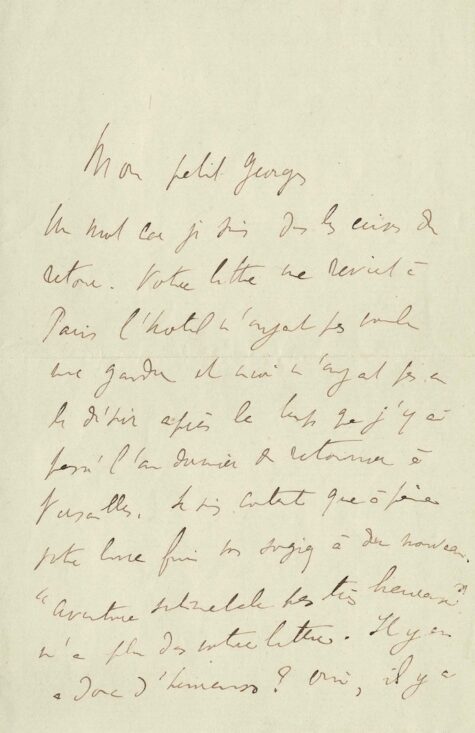 Mon petit Georges
Un mot car je suis dans les ennuis du
retour. Votre lettre me revient à
Paris l'hôtel n'ayant pas voulu
me garder et moi n'ayant pas eu
le désir après le temps que j'y ai
passé l'an dernier de retourner à
Versailles. Je suis content que à peine
votre livre fini vous songiez à du nouveau.
"aventure sentimentale pas très heureuse"
n'a plu dans votre lettre. Il y en
a donc d'heureuses ? oui, il y a